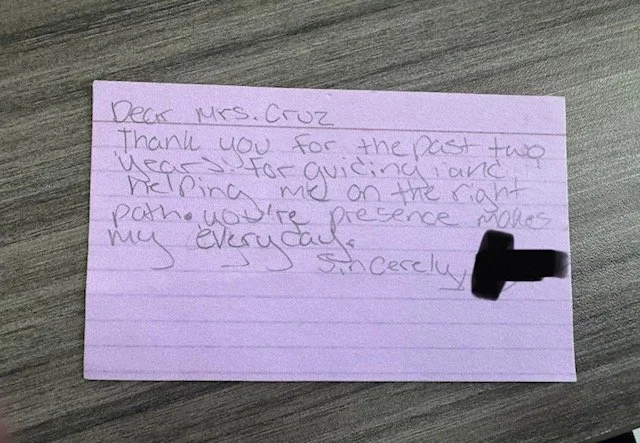 Dear Mrs. Cruz
Thank you for the past two
years! for guiding and
helping me on the right
path. you're presence makes
my everyday.
Sincerely,